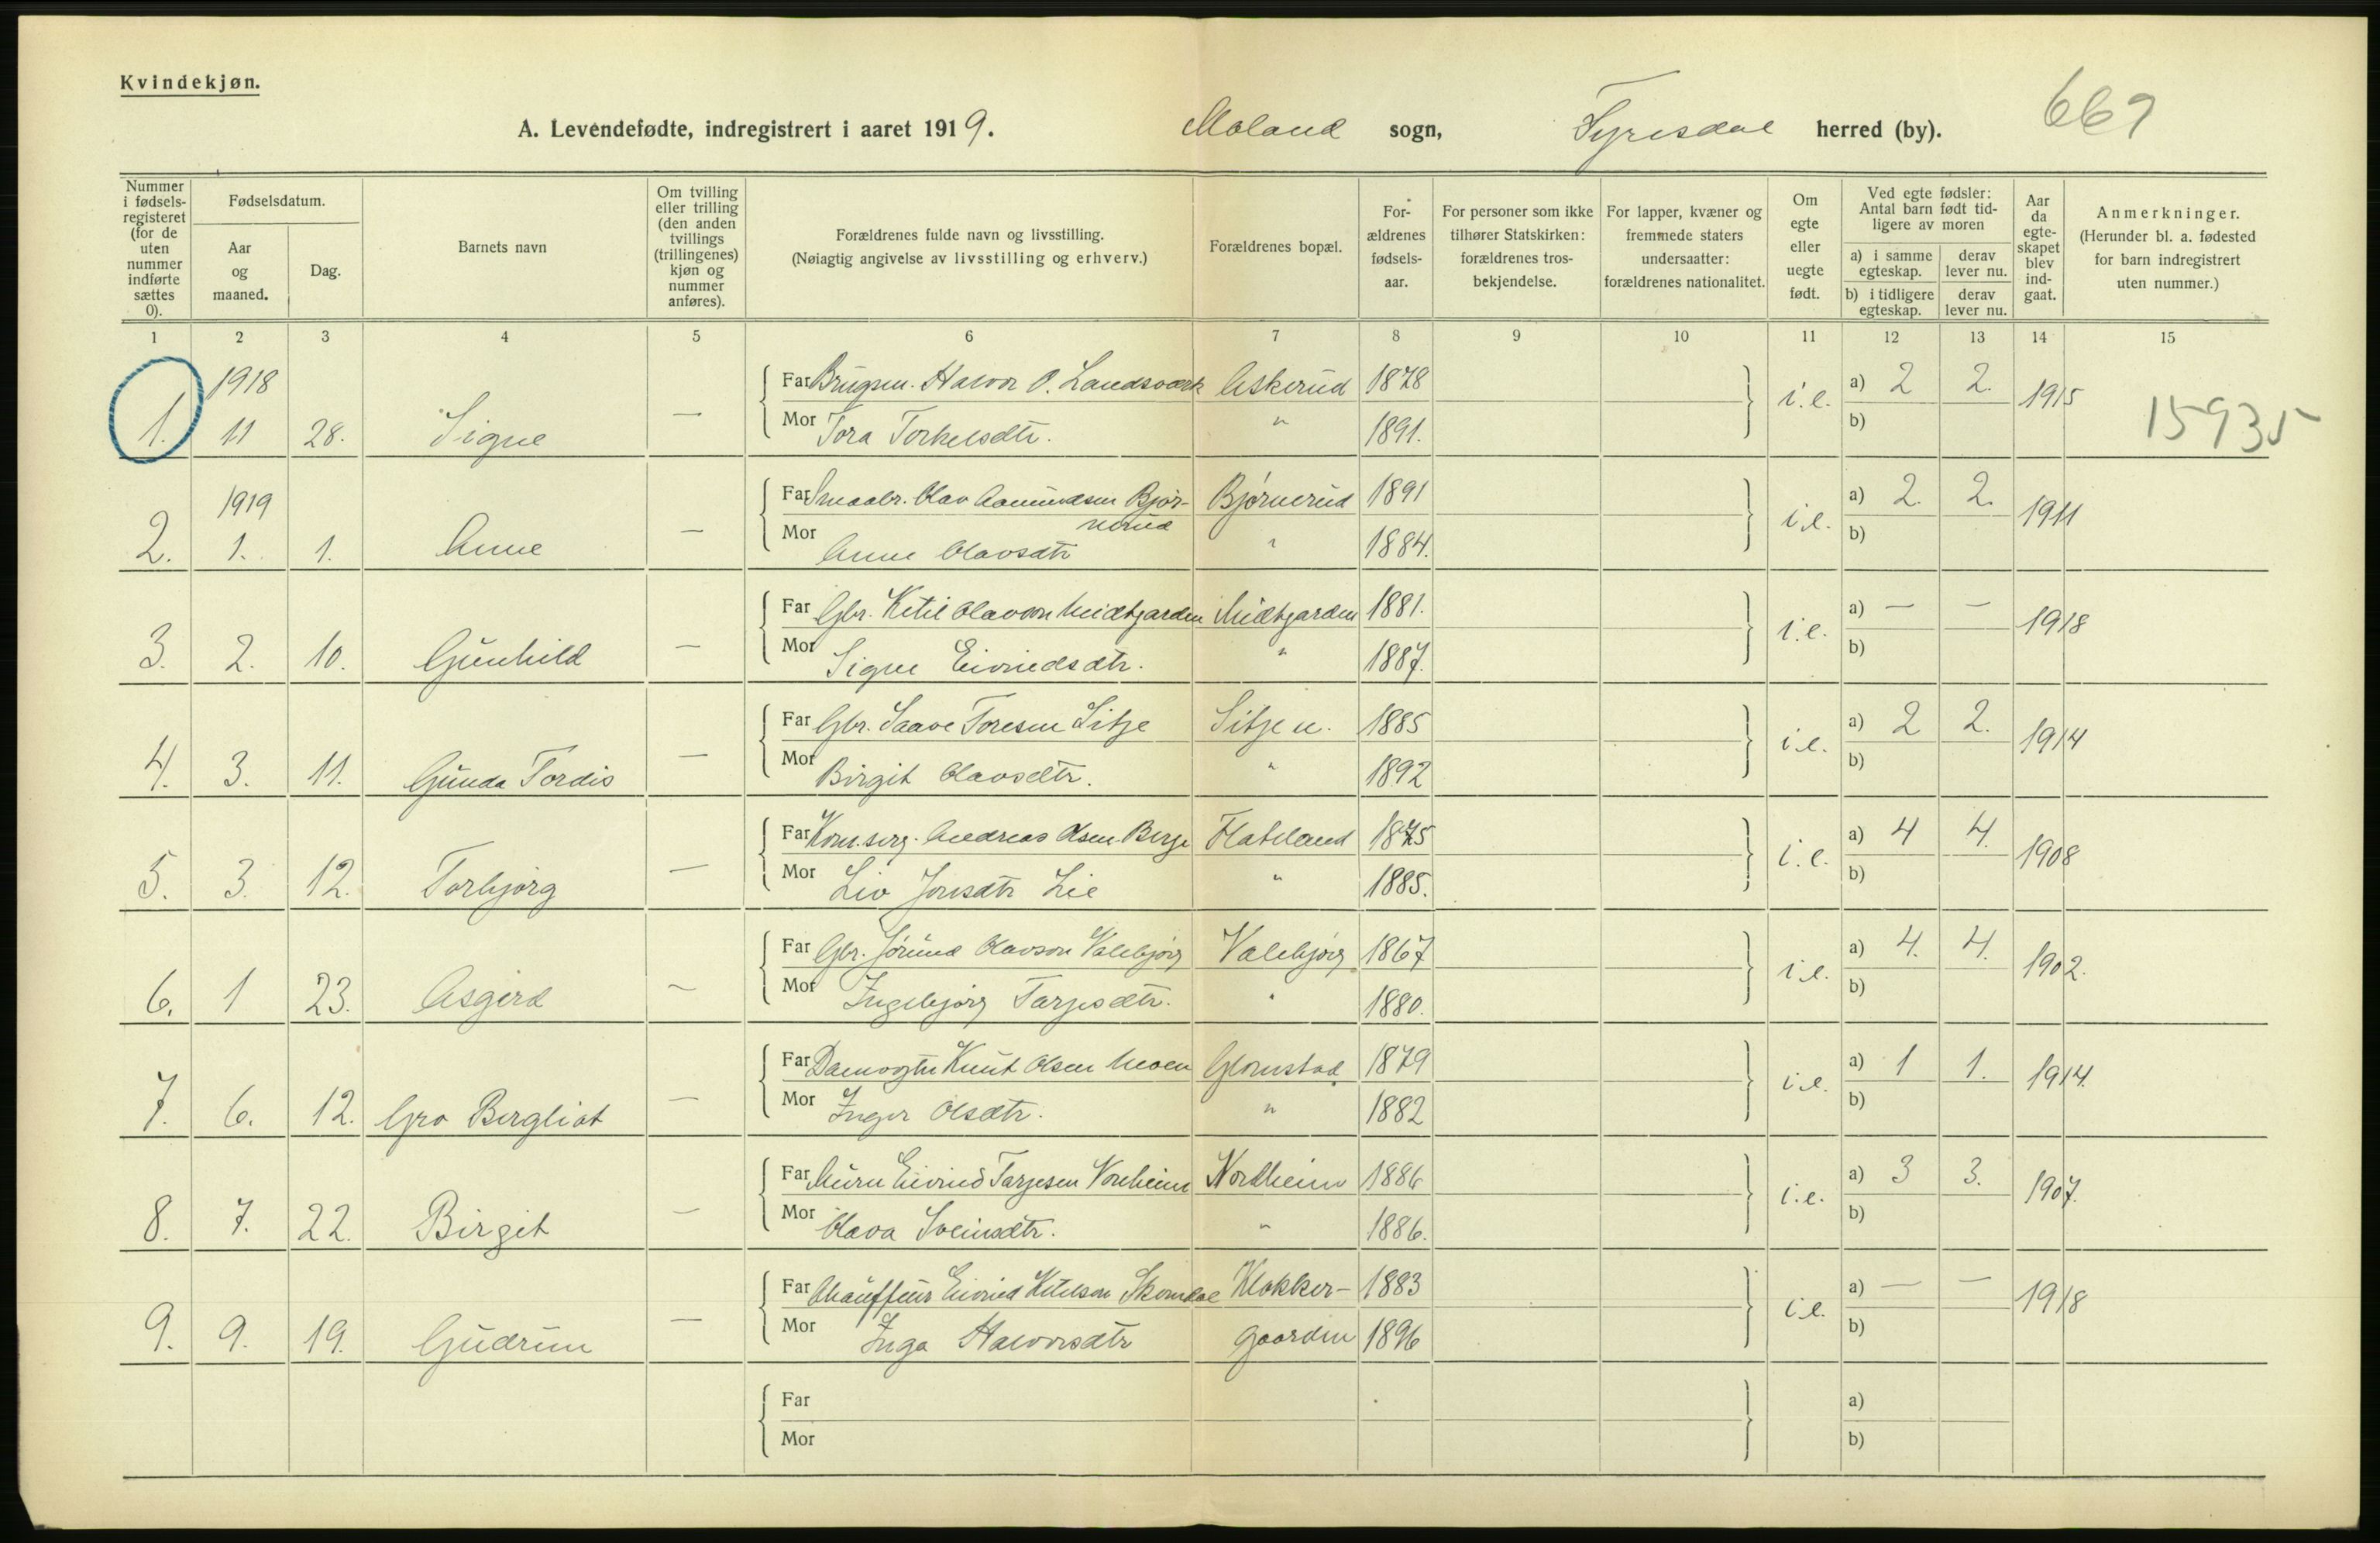 Kvindekjøn.
A. Levendefødte, indregistrert i aaret 1919. Moland sogn, Tyrisdal herred (by). 669
Nummer i fødselsregisteret (for de uten nummer indførte sættes 0).
Fødselsdatum.
Aar og maaned.
Dag.
Barnets navn
Om tvilling eller trilling (den anden tvillings (trillingenes) kjøn og nummer anføres).
Forældrenes fulde navn og livsstilling.
(Nøiagtig angivelse av livsstilling og erhverv.)
Forældrenes bopæl.
Forældrenes fødselsaar.
For personer som ikke tilhører Statskirken: forældrenes trosbekjendelse.
For lapper, kvæner og fremmede staters undersaatter: forældrenes nationalitet.
Om egte eller uegte født.
Ved egte fødsler: Antal barn født tidligere av moren
a) i samme egteskap. derav lever nu.
b) i tidligere egteskap. derav lever nu.
Aar da egteskapet blev indgaat.
Anmerkninger.
(Herunder bl. a. fødested for barn indregistrert uten nummer.)
1 2 3 4 5 6 7 8 9 10 11 12 13 14 15
1918 Far Brugsm. Halvor O. Landsverk Askerud 1878 a) 2 2.
1. 11 28. Signe — Mor Tora Torkelsdtr. " 1891. i.e. b) 1915 15935
1919 Far Smaabr. Olav Aamundsen Bjørnerud Bjørnerud 1891 a) 2. 2.
2. 1. 1. Anne — Mor Anne Olavsdtr " 1884. i.e. b) 1911
Far Gbr. Ketil Olavson Midtgarden Midtgarden 1881. a) — —
3. 2. 10. Gunhild — Mor Signe Eivindsdtr. " 1887. i.e. b) 1918
Far Gbr. Saave Toresen Sitje Sitje n. 1885 a) 2 2.
4. 3. 11. Gunda Tordis — Mor Birgit Olavsdtr. " 1892 i.e. b) 1914
Far Korn.serg. Andreas Olsen Berge Flateland 1875 a) 4 4.
5. 3. 12. Torbjørg — Mor Liv Jonsdtr Lie " 1885. i.e. b) 1908
Far Gbr. Jørund Olavson Valebjørg Valebjørg 1867 a) 4. 4.
6. 1 23. Asgerd — Mor Ingebjørg Tarjesdtr. " 1880. i.e. b) 1902.
Far Damvogter Knut Olsen Moen Glomstad 1879 a) 1 1.
7. 6. 12. Gro Bergliot — Mor Inger Olsdtr. " 1882 i.e. b) 1914.
Far Murm Eivind Tarjesen Nordheim Nordheim 1886 a) 3 3.
8. 7. 22. Birgit — Mor Olava Sveinsdtr. " 1886. i.e. b) 1907.
Far Chauffeur Eivind Ketilson Skomdal Klokker- 1883 a) — —
9. 9. 19. Gudrun — Mor Inga Halvorsdtr gaarden 1896 i.e. b) 1918
Far a)
Mor b)